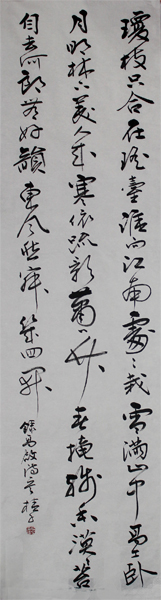 瓊枝只合在瑤臺誰向江南處々栽雪滿山中高士臥
月明林下美人來寒依疏影蕭々竹春掩殘香漠々苔
自去何郎無好韻東風愁寂幾回開
錄高啟詩